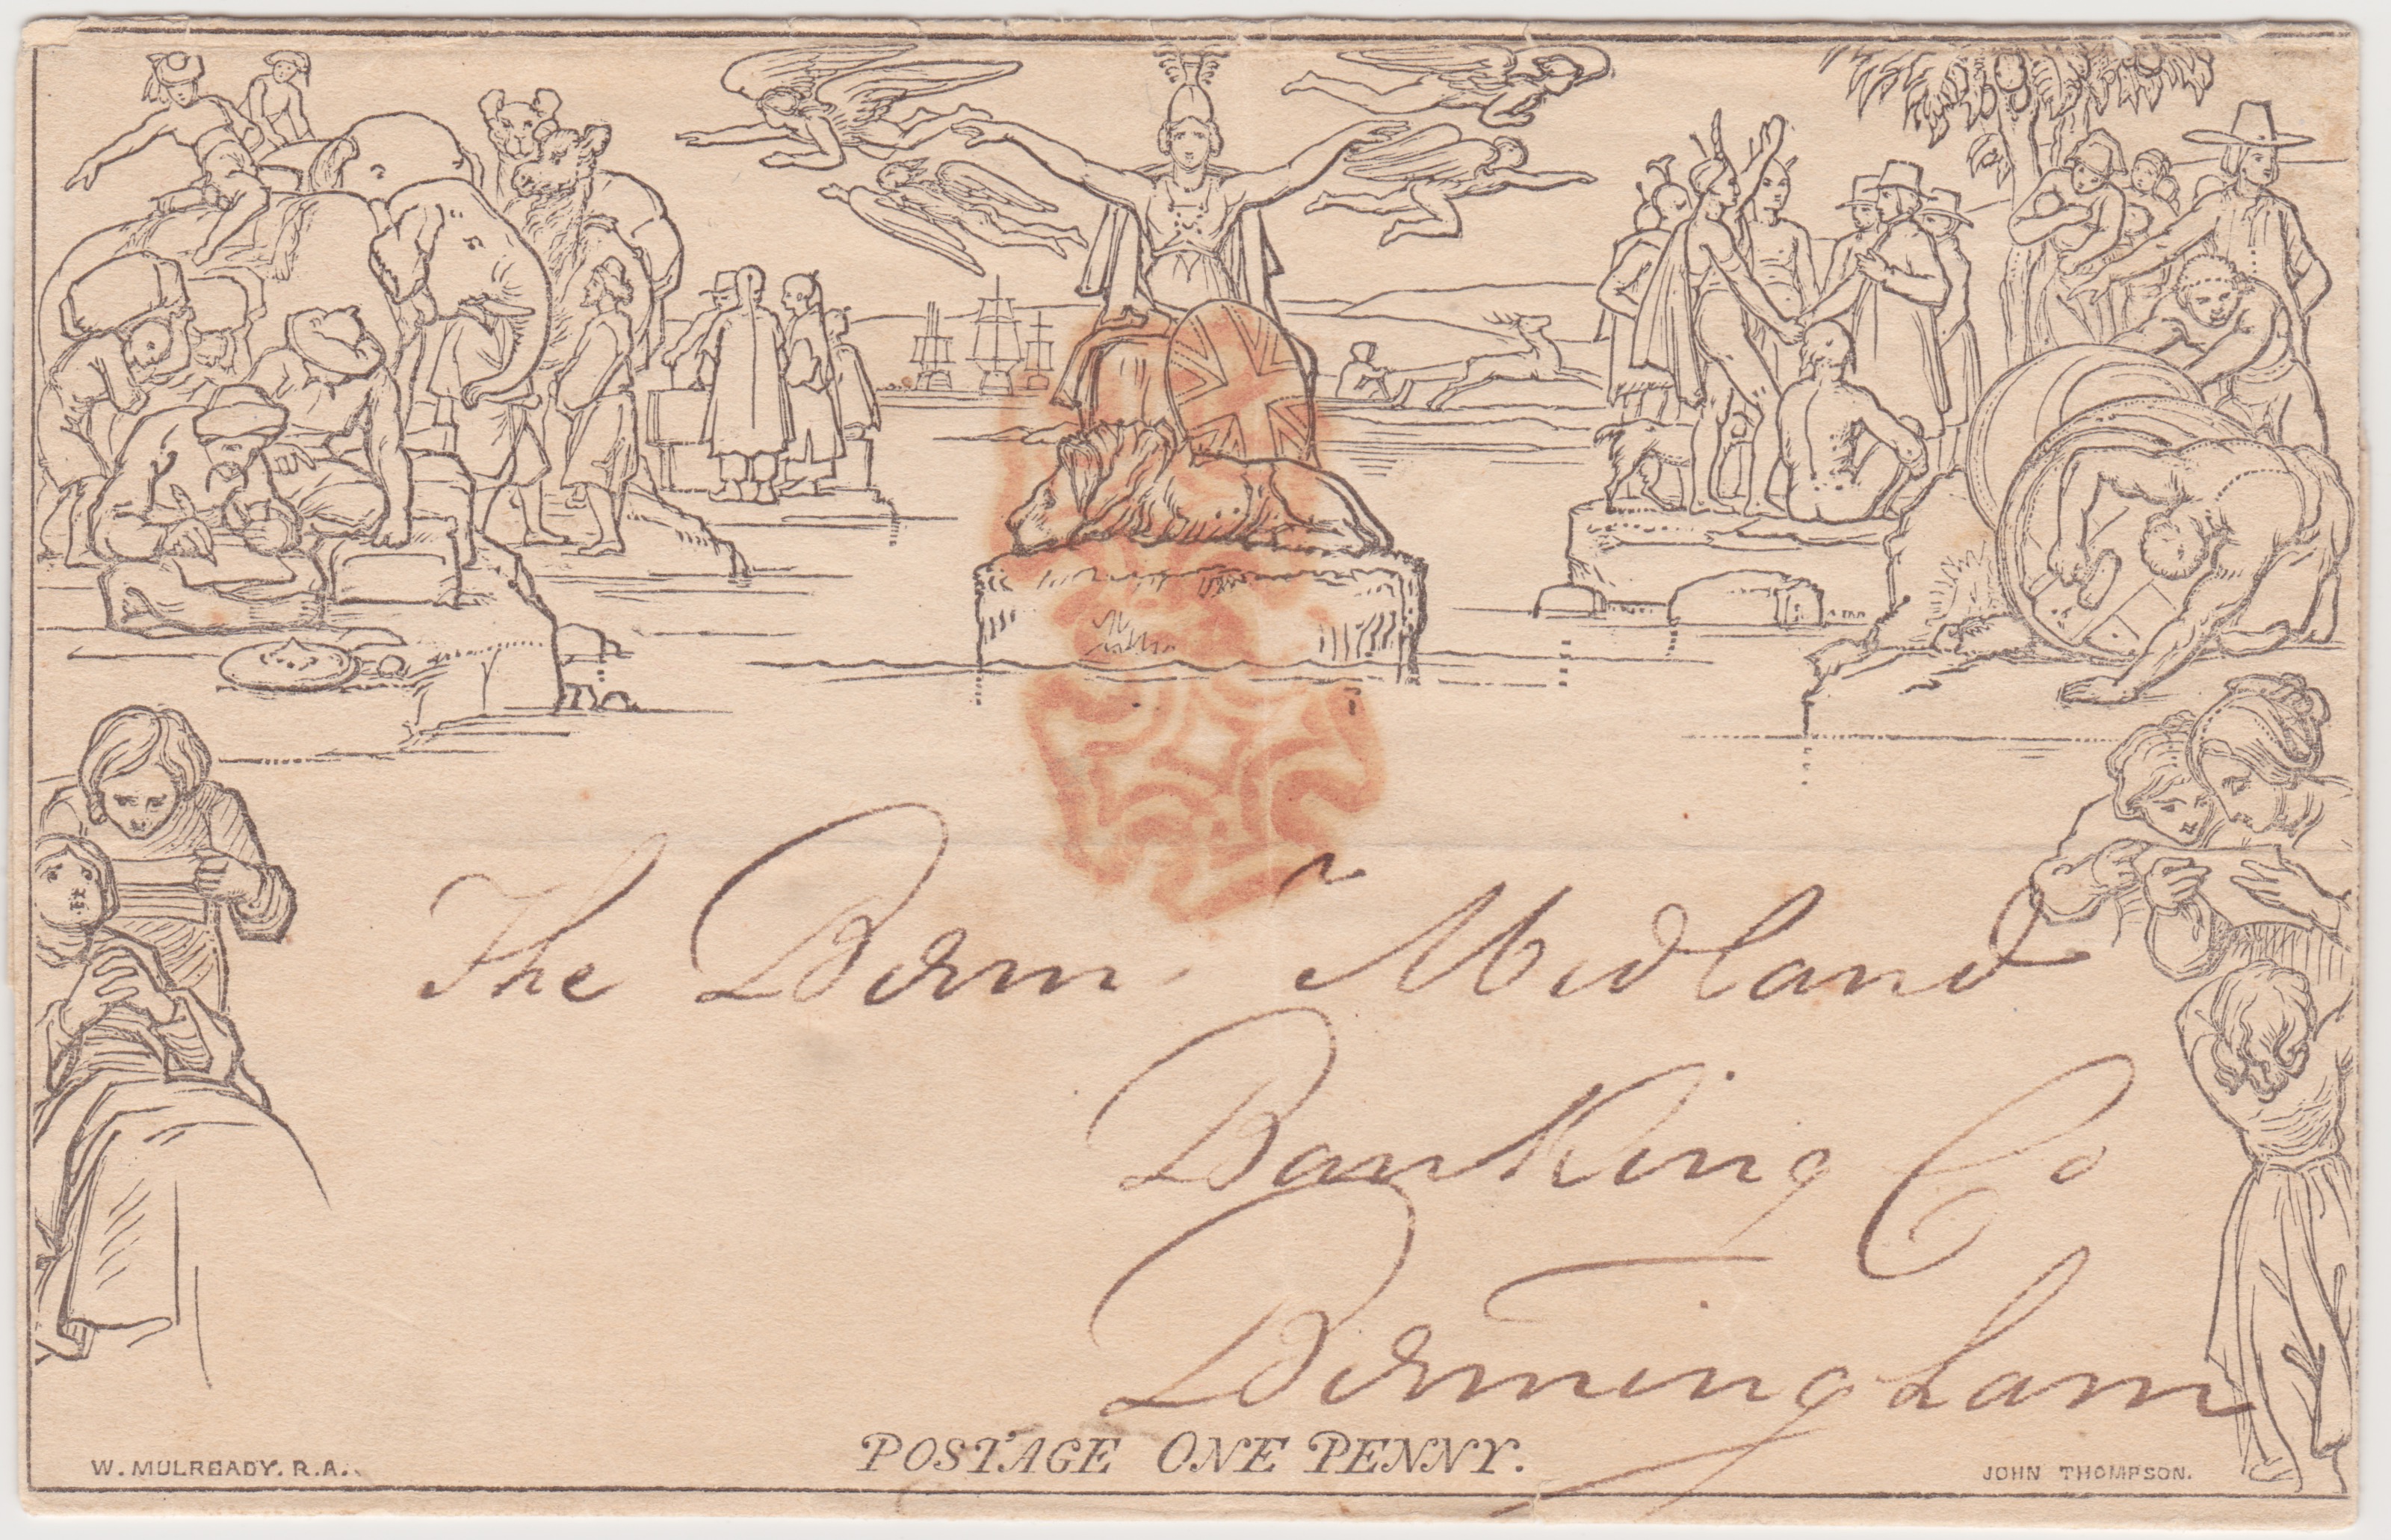 The Birm. Midland
Banking Co
Birmingham
POSTAGE ONE PENNY.
W. MULREADY. R.A.
JOHN THOMPSON.